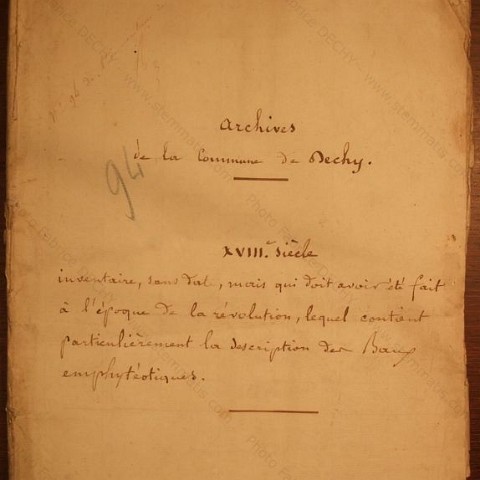 Archives
de la Commune de Dechy.
94
XVIII.e Siècle
inventaire, sans dal, mais qui doit avoir été fait
à l'époque de la révolution, lequel contient
particulièrement la description des Baux
emphytéotiques.